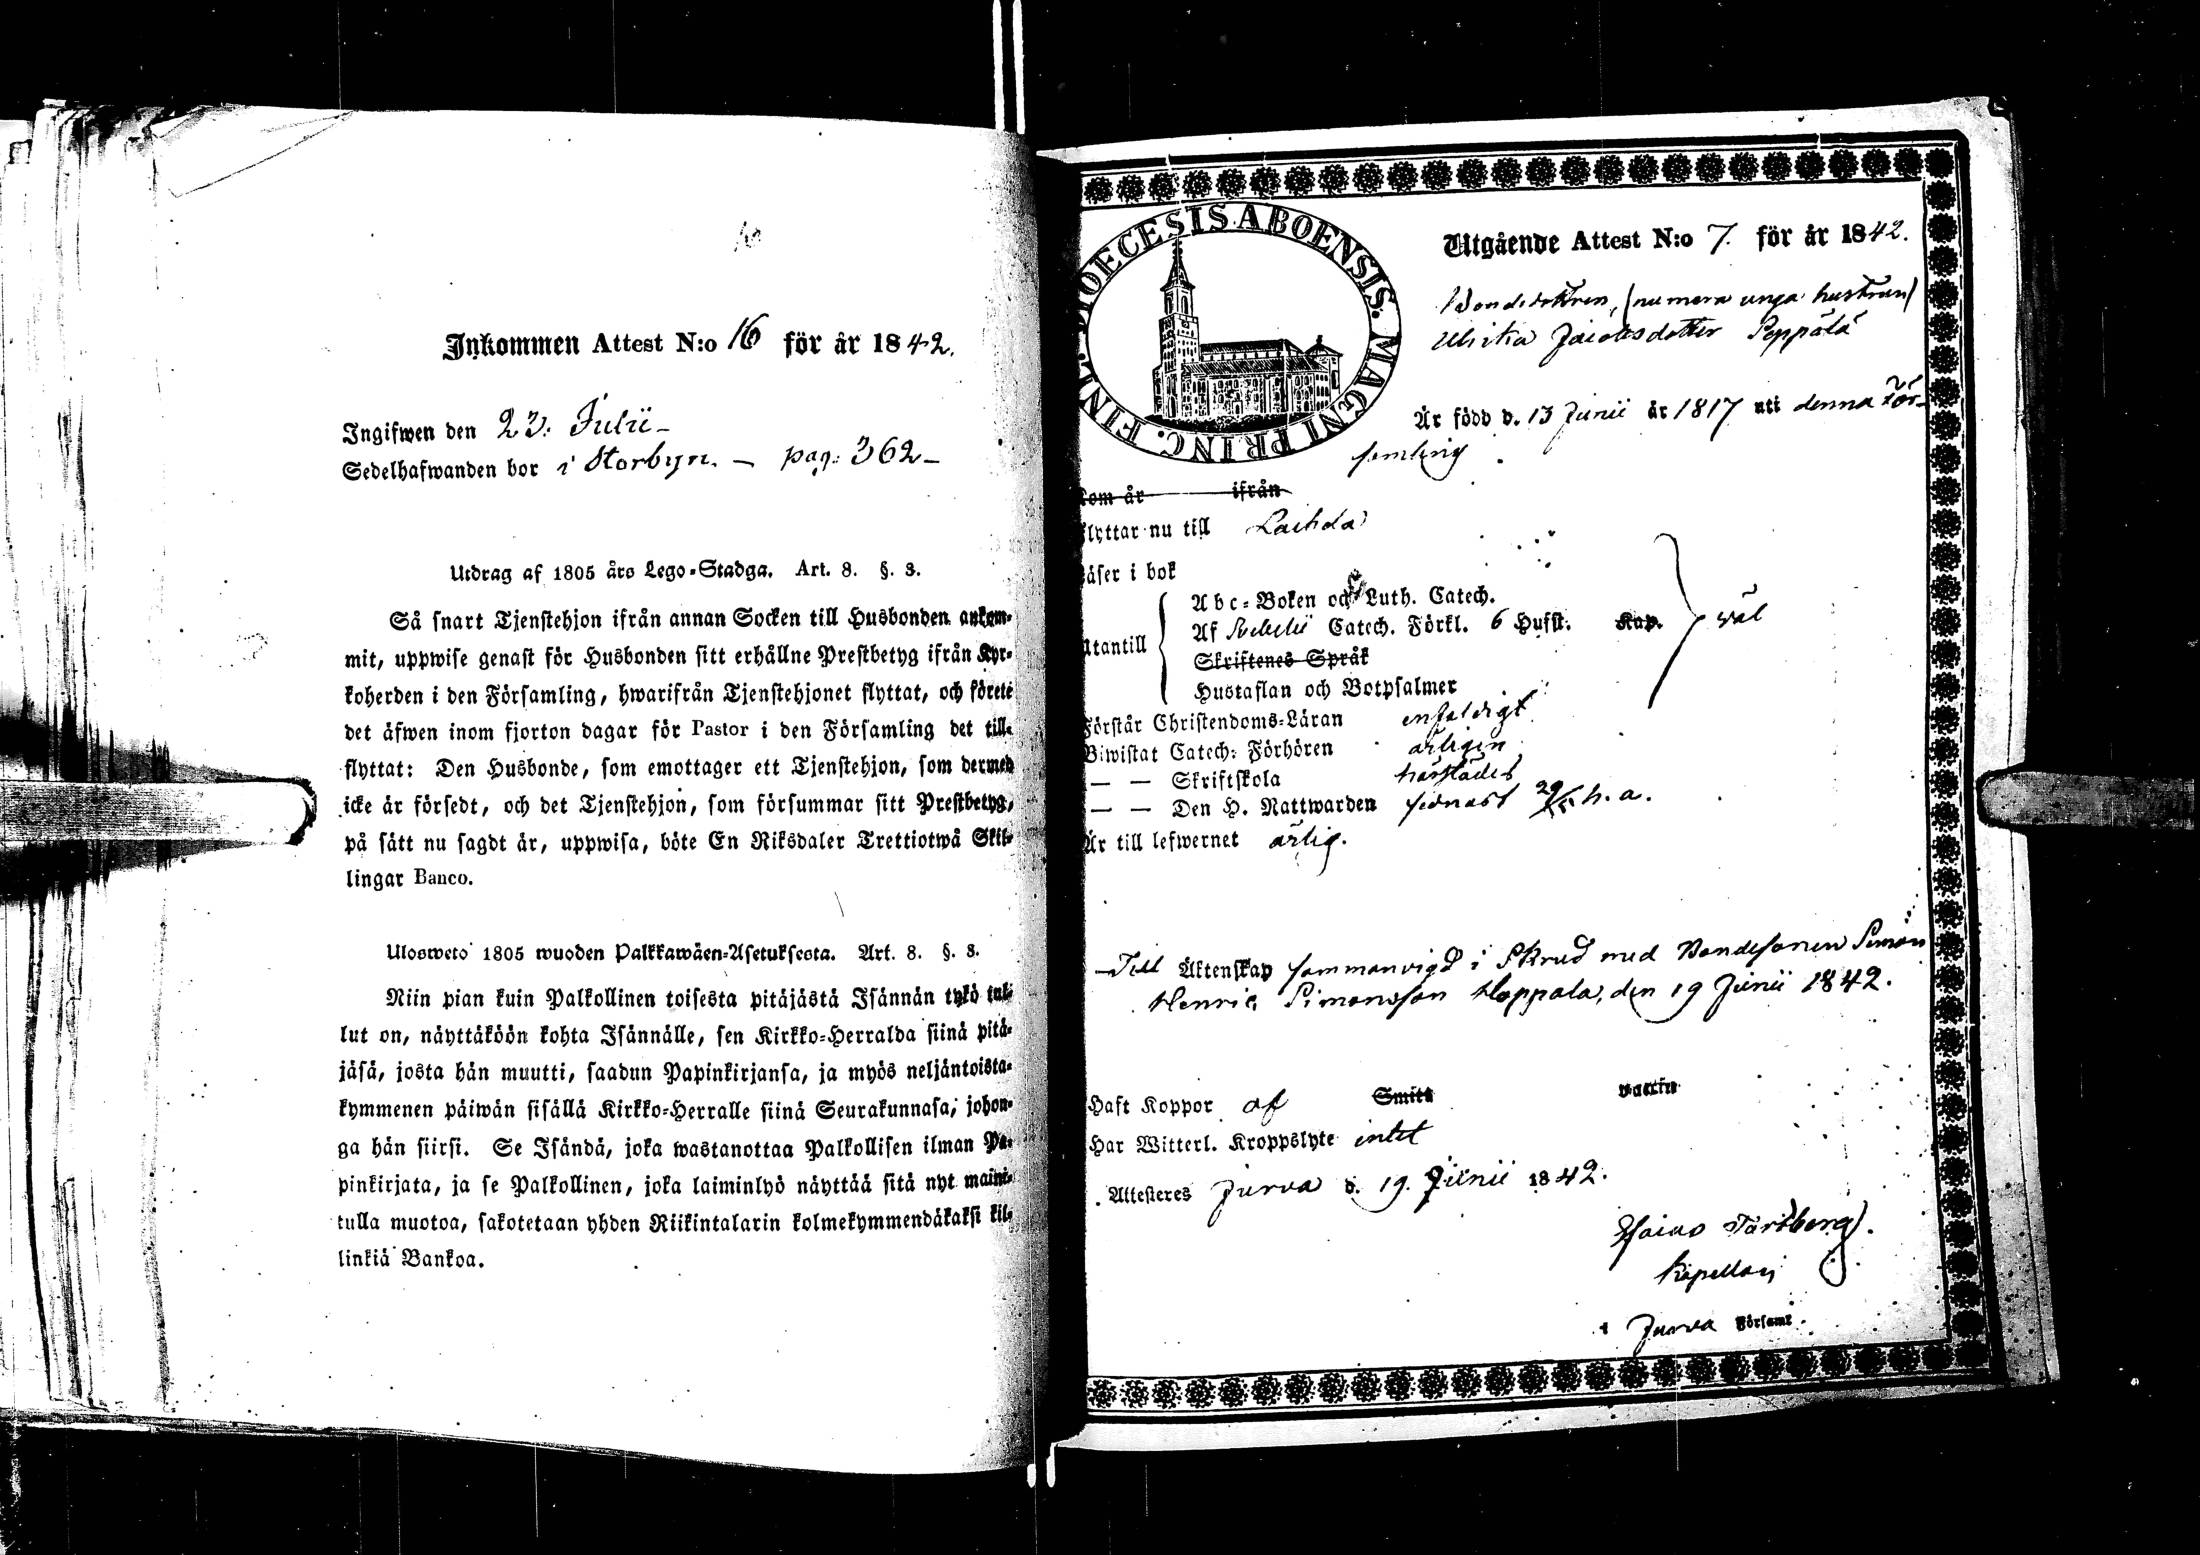 Inkommen Attest N:o 16 för år 1842.
Ingifwen den 23. Julii –
Sedelhafwanden bor i Storbyn. – pag: 362 –
Utdrag af 1805 års Lego-Stadga. Art. 8. §. 3.
Så snart Tjenstehjon ifrån annan Socken till Husbonden ankom-
mit, uppwise genast för Husbonden sitt erhållne Prestbetyg ifrån Kyr-
koherden i den Församling, hwarifrån Tjenstehjonet flyttat, och förete
det äfwen inom fjorton dagar för Pastor i den Församling det till-
flyttat: Den Husbonde, som emottager ett Tjenstehjon, som dermed
icke är försedt, och det Tjenstehjon, som försummar sitt Prestbetyg,
på sätt nu sagdt är, uppwisa, böte En Riksdaler Trettiotwå Skil-
lingar Banco.
Ulosweto 1805 wuoden Palkkawäen-Asetuksesta. Art. 8. §. 3.
Niin pian kuin Palkollinen toisesta pitäjästä Isännän tykö tul-
lut on, näyttäköön kohta Isännälle, sen Kirkko-Herralda siinä pitä-
jäsä, josta hän muutti, saadun Papinkirjansa, ja myös neljäntoista-
kymmenen päiwän sisällä Kirkko-Herralle siinä Seurakunnasa, johon-
ga hän siirsi. Se Isändä, joka wastanottaa Palkollisen ilman Pa-
pinkirjata, ja se Palkollinen, joka laiminlyö näyttää sitä nyt maini-
tulla muotoa, sakotetaan yhden Riikintalarin kolmekymmendäkaksi kil-
linkiä Bankoa.
DIOECESIS ABOENSIS. MAGNI PRINC. FINL.
Utgående Attest N:o 7. för år 1842.
Bondedottren, (numera unga hustrun)
Ulrika Jacobsdotter Seppälä
Är född d. 13 Junii år 1817 uti denna För-
samling
Kom år ifrån
flyttar nu till Laihda
Läser i bok
Abc-Boken och Luth. Catech.
Utantill Af Svebelii Catech. Förkl. 6 Hufst. Kap. väl
Skriftenes Språk
Hustaflan och Botpsalmer
Förstår Christendoms-Läran enfaldigt
Biwistat Catech: Förhören årligen
— — Skriftskola härstädes
— — Den H. Nattwarden sednast 29/5 h.a.
Är till lefwernet ärlig.
Till Äktenskap sammanvigd i Skrud med Bondesonen Simon
Henric Simonsson Hoppala, den 19 Junii 1842.
Haft Koppor af Smitt Vaccin
Har Witterl. Kroppslyte intet
Attesteres Jurva d. 19. Junii 1842.
Esaias Hartberg.
Kapellan
i Jurva Församl.